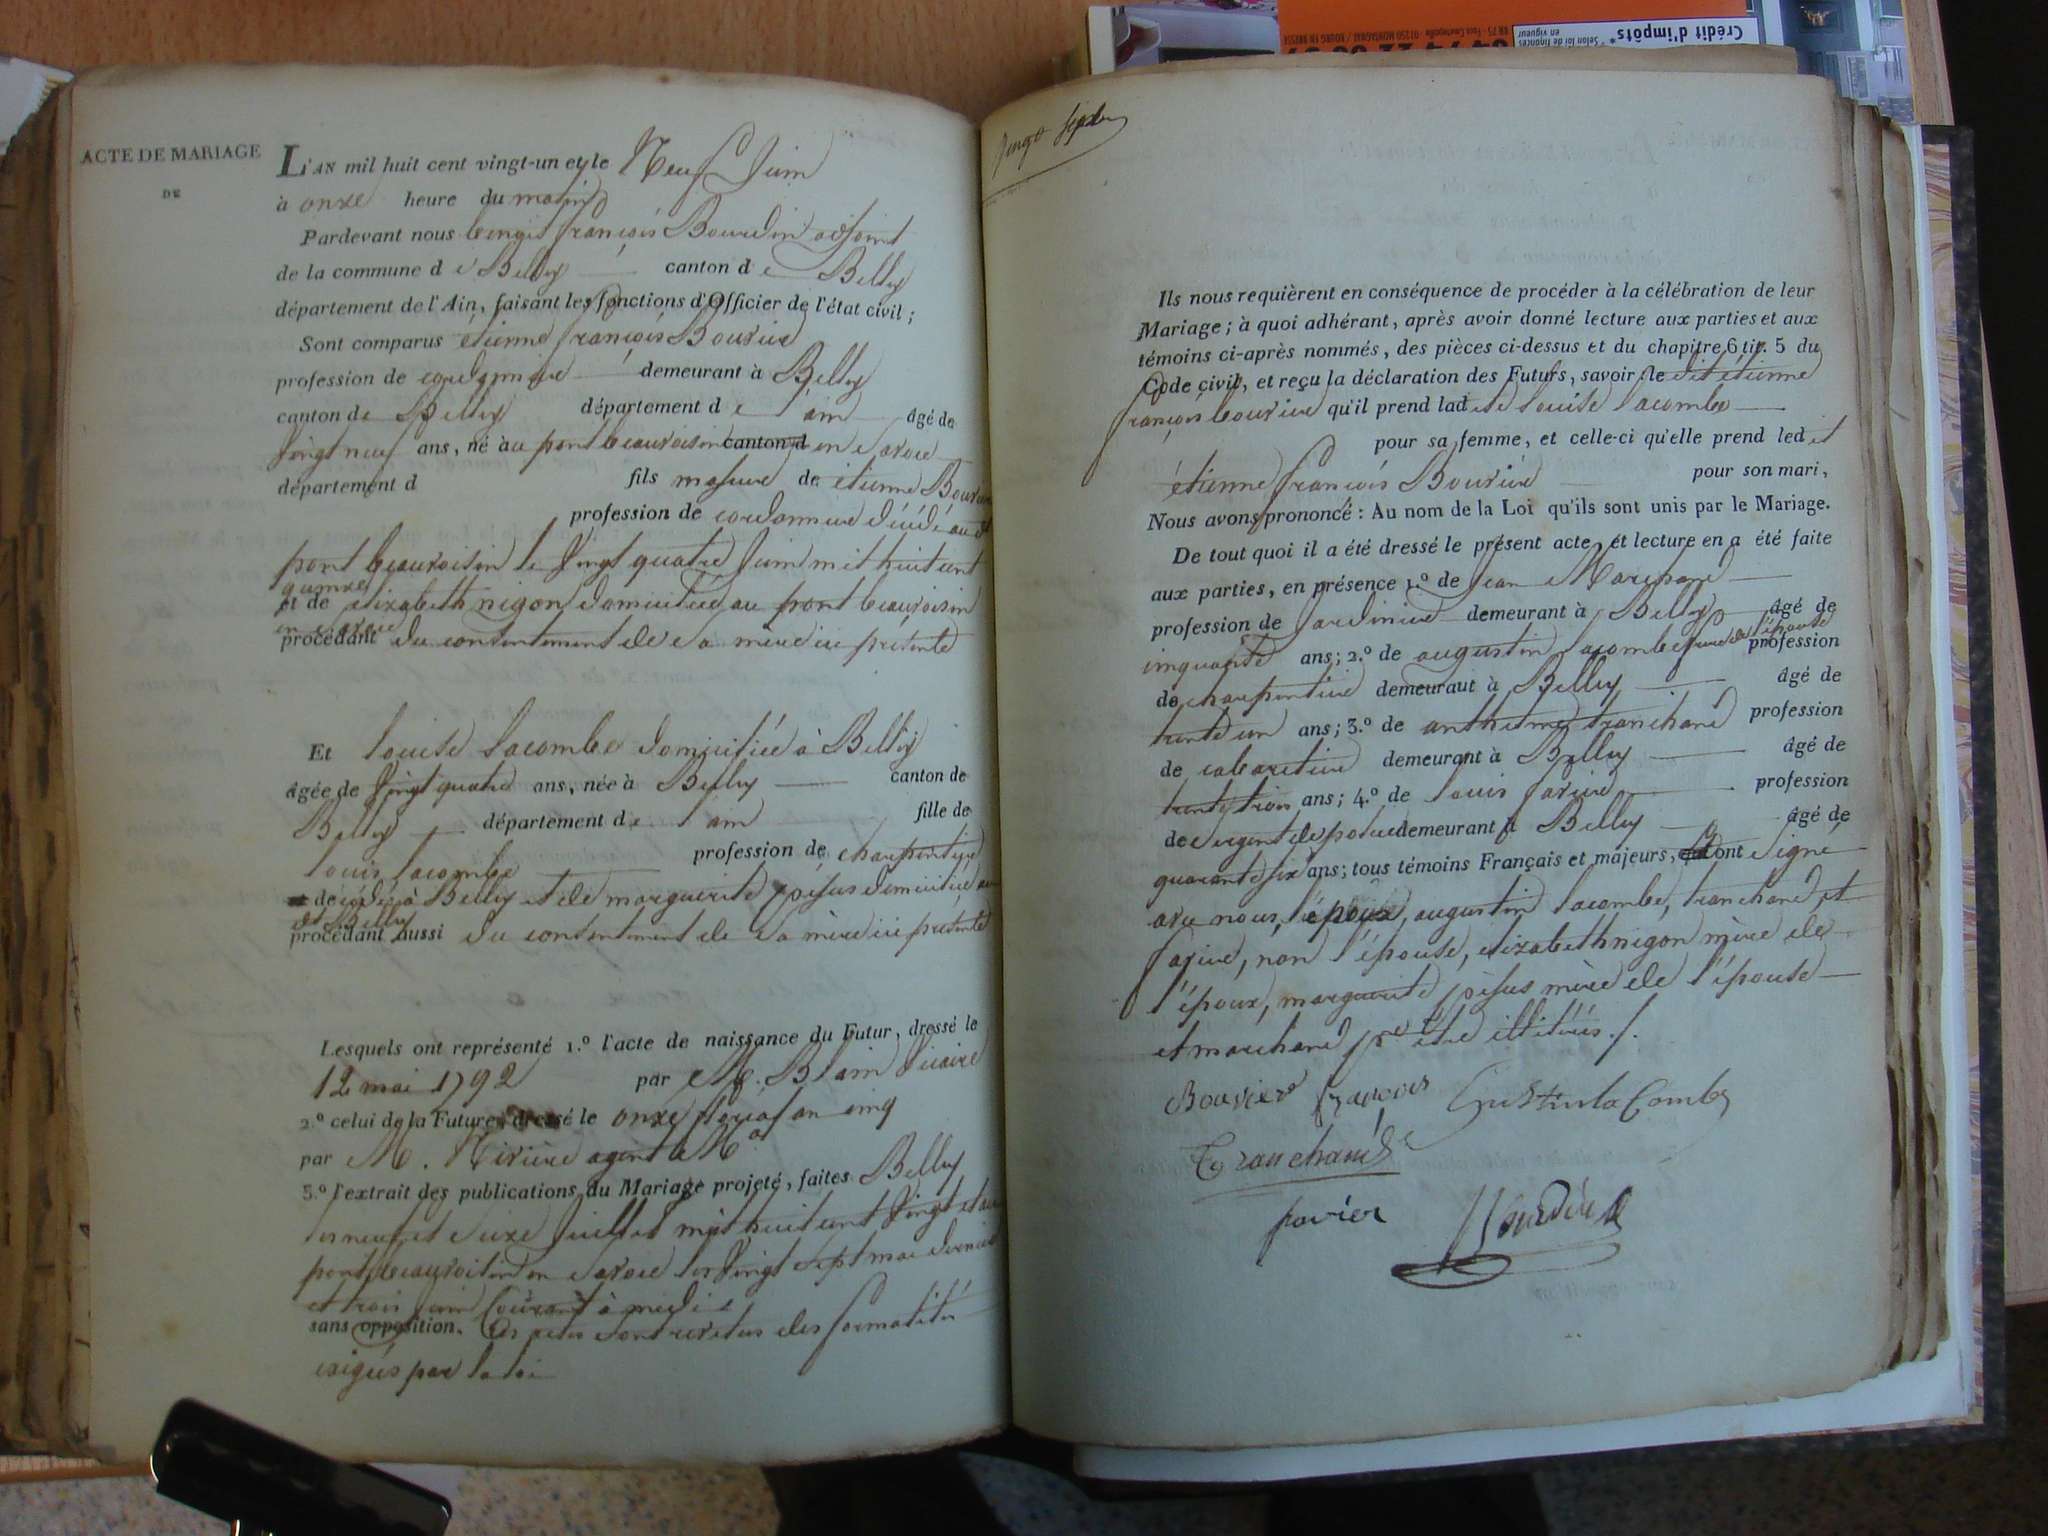 Crédit d'impôts*
* Selon loi de finances
en vigueur
ACTE DE MARIAGE
DE
L'AN mil huit cent vingt-un et le Neuf Juin
à onze heure du matin
Pardevant nous benoit françois Bourdin adjoint
de la commune de Belley canton de Belley
département de l'Ain, faisant les fonctions d'Officier de l'état civil ;
Sont comparus étienne françois Bouvier
profession de cordonnier demeurant à Belley
canton de Belley département de l'ain âgé de
Vingt neuf ans, né au pont beauvoisin canton d en Savoie
département d fils majeur de étienne Bouvier
profession de cordonnier décédé au dt
pont beauvoisin le Vingt quatre Juin mil huit cent
quinze
et de elizabeth nigon domiciliée au pont beauvoisin
en Savoie
procédant du consentement de sa mère ici présente
Et louise Lacombe domiciliée à Belley
âgée de Vingt quatre ans, née à Belley canton de
Belley département de l'ain fille de
louis lacombe profession de charpentier
décédé à Belley et de marguerite domiciliée
dt Belley
procédant aussi du consentement de sa mère ici présente
Lesquels ont représenté 1.º l'acte de naissance du Futur, dressé le
12 mai 1792 par M. Blain Vicaire
2.º celui de la Future, dressé le onze floréal an cinq
par M. agent
3.º l'extrait des publications du Mariage projeté, faites Belley
les neuf et Juillet mil huit cent Vingt et au
pont beauvoisin en Savoie les Vingt Sept mai dernier
et trois Juin Courant à midi
sans opposition. Ces actes sont revetus des formalités
exigées par la loi
Vingt Sept
Ils nous requièrent en conséquence de procéder à la célébration de leur
Mariage ; à quoi adhérant, après avoir donné lecture aux parties et aux
témoins ci-après nommés, des pièces ci-dessus et du chapitre 6 tit. 5 du
Code civil, et reçu la déclaration des Futurs, savoir : le dit étienne
françois bouvier qu'il prend ladite louise lacombe
pour sa femme, et celle-ci qu'elle prend ledit
étienne françois Bouvier pour son mari,
Nous avons prononcé : Au nom de la Loi qu'ils sont unis par le Mariage.
De tout quoi il a été dressé le présent acte, et lecture en a été faite
aux parties, en présence 1.º de Jean Marchand
profession de Jardinier demeurant à Belley âgé de
cinquante ans ; 2.º de augustin lacombe frere de l'épouse profession
de charpentier demeurant à Belley âgé de
trente un ans ; 3.º de anthelme tranchand profession
de cabaretier demeurant à Belley âgé de
trente trois ans ; 4.º de louis favier profession
de sergent de police demeurant à Belley âgé de
quarante six ans ; tous témoins Français et majeurs, ont Signé
avec nous, l'époux, augustin lacombe, tranchand et
favier, non l'épouse, elizabeth nigon mère de
l'époux, marguerite mère de l'épouse
et marchand pr être illitérés ./.
Bouvier françois Gustin la Combe
Tranchand
favier Bourdin